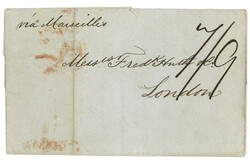 via Marseilles
7/9
Mess.rs Fred.k Huth & Co.
London